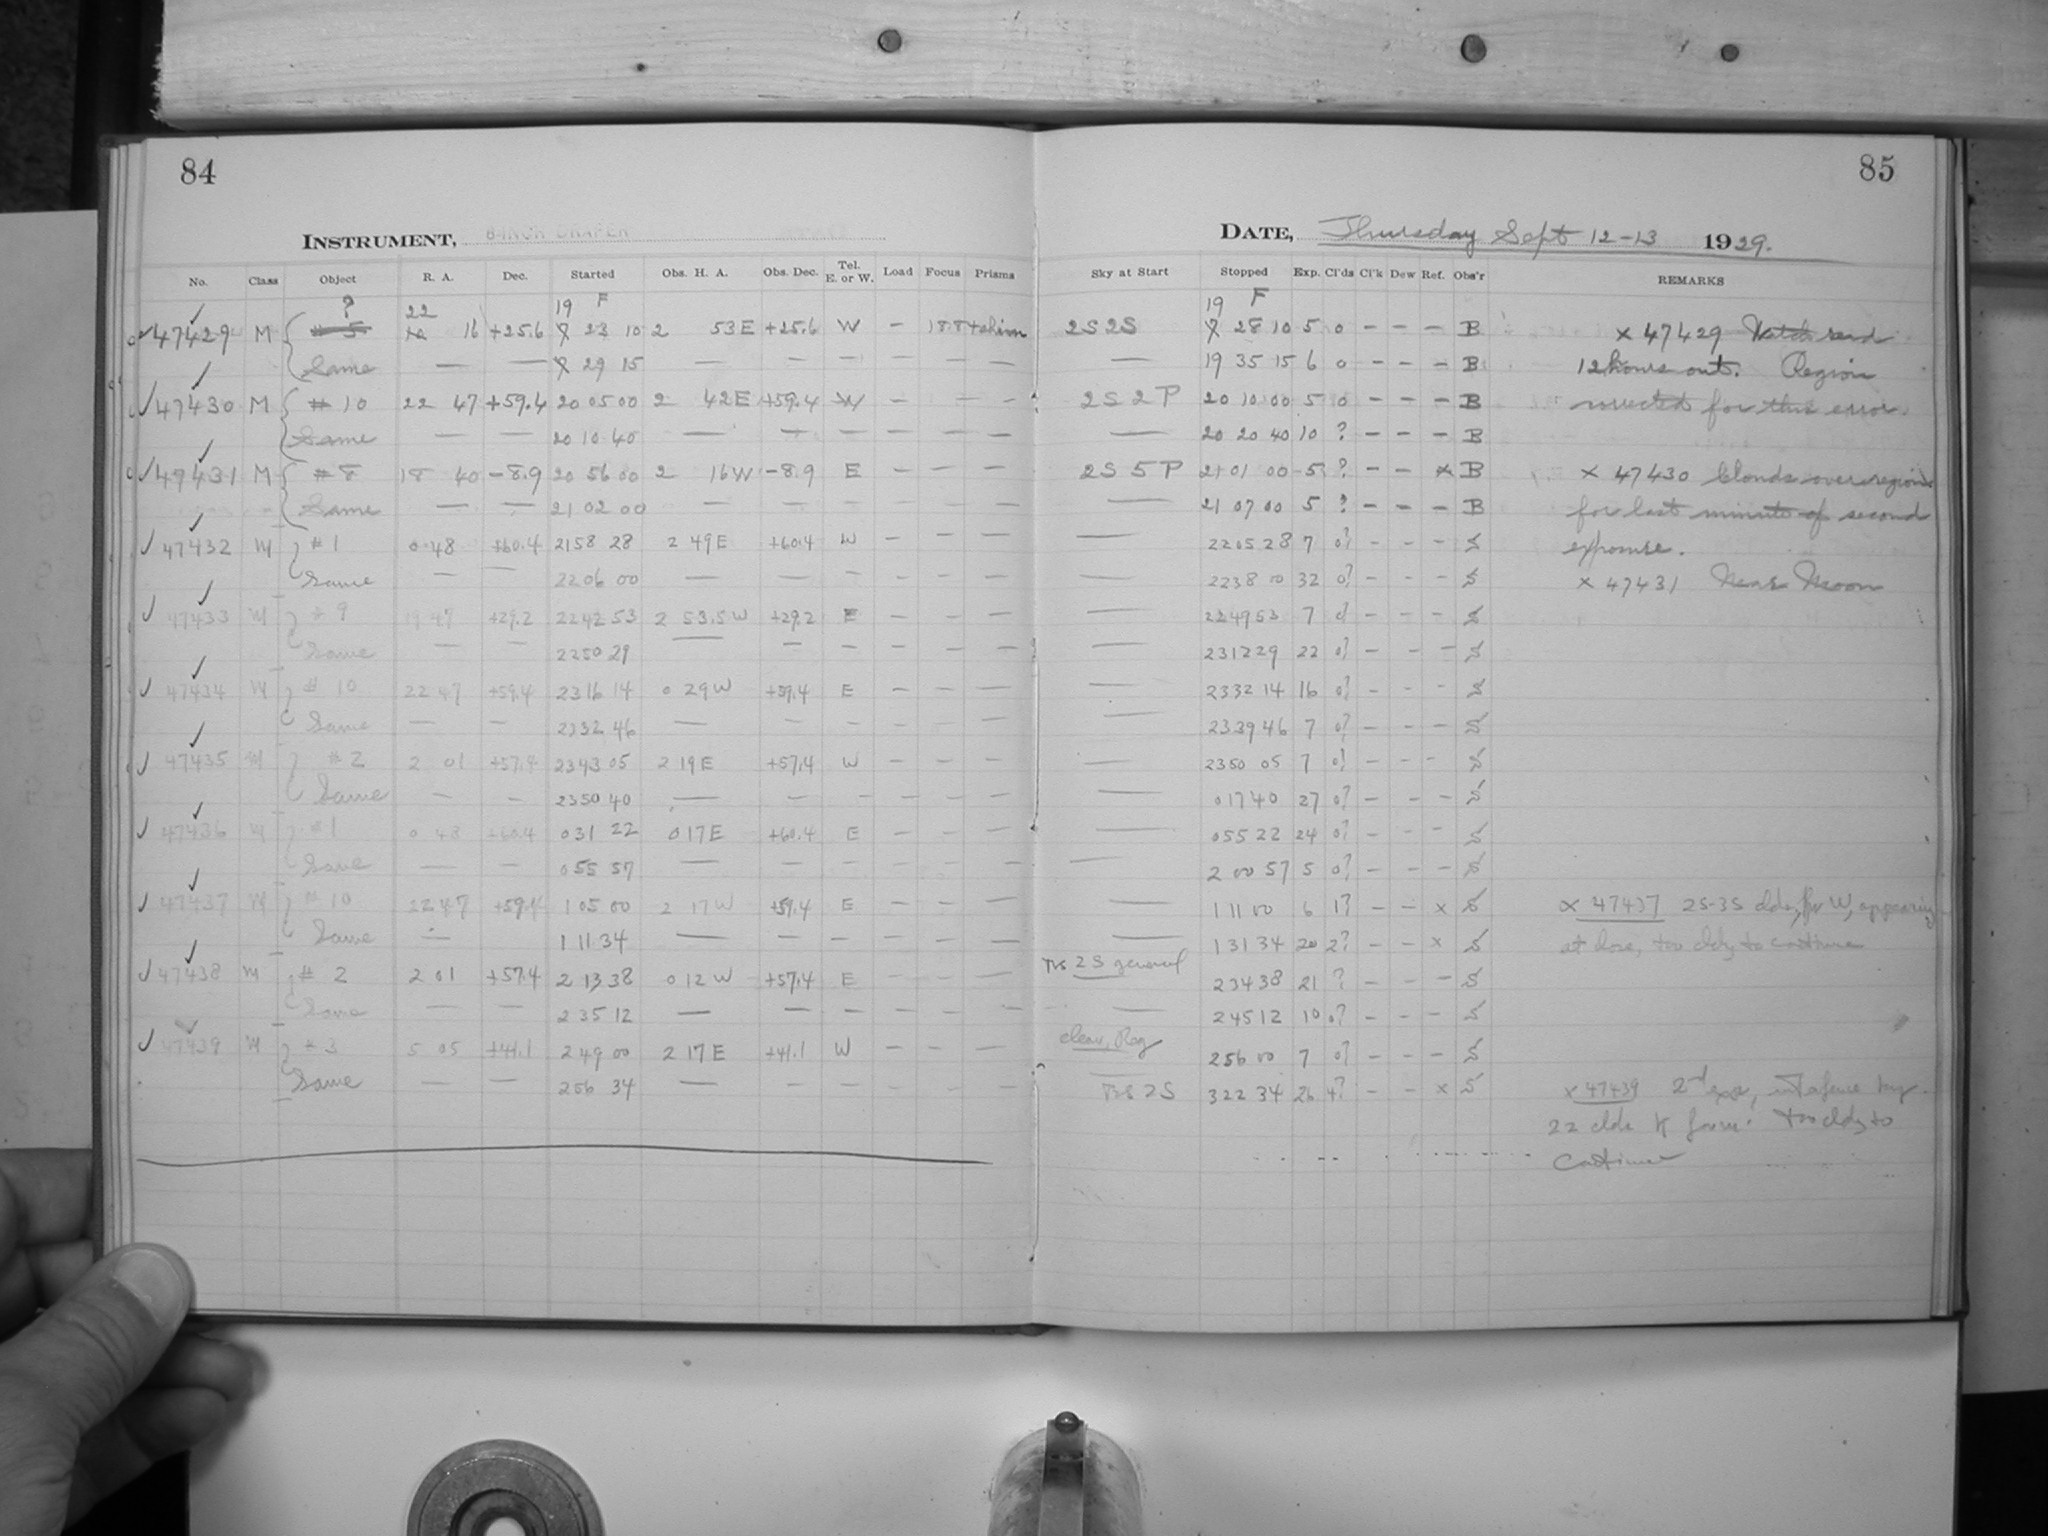 84
85
INSTRUMENT, 8-INCH DRAPER
DATE, Thursday Sept 12-13 1929.
No. Class Object R. A. Dec. Started Obs. H. A. Obs. Dec. Tel. E. or W. Load Focus Prisms Sky at Start Stopped Exp. Cl'ds Cl'k Dew Ref. Obs'r REMARKS
? 22 19 F 19 F
47429 M # 5 16 +25.6 23 10 2 53E +25.6 W — 2S 2S 28 10 5 0 – – – B x 47429 Watch read
Same — — 29 15 — — – – – — — 19 35 15 6 0 – – – B 12 hours out. Region
47430 M # 10 22 47 +59.4 20 05 00 2 42E +59.4 W – – – 2S 2P 20 10 00 5 0 – – – B corrected for this error.
Same — — 20 10 40 — — – – – — — 20 20 40 10 ? – – – B
47431 M # 8 18 40 -8.9 20 56 00 2 16W -8.9 E 2S 5P 21 01 00 5 ? – – x B x 47430 Clouds over region
Same — — 21 02 00 — — – – – — — 21 07 00 5 ? – – – B for last minute of second
47432 M # 1 0 48 +60.4 21 58 28 2 49E +60.4 W – – – — 22 05 28 7 0? – – – S exposure.
Same — — 22 06 00 — — – – – — — 22 38 00 32 0? – – – S x 47431 Near Moon
47433 M # 9 19 47 +29.2 22 42 53 2 53.5W +29.2 E – – – — 22 49 53 7 0? – – – S
Same — — 22 50 29 — — – – – — — 23 12 29 22 0? – – – S
47434 M # 10 22 47 +59.4 23 16 14 0 29W +59.4 E – – – — 23 32 14 16 0? – – – S
Same — — 23 32 46 — — – – – — — 23 39 46 7 0? – – – S
47435 M # 2 2 01 +57.4 23 43 05 2 19E +57.4 W – – – — 23 50 05 7 0? – – – S
Same — — 23 50 40 — — – – – — — 0 17 40 27 0? – – – S
47436 M # 1 0 48 +60.4 0 31 22 0 17E +60.4 E – – – — 0 55 22 24 0? – – – S
Same — — 0 55 57 — — – – – — — 2 00 57 5 0? – – – S
47437 M # 10 22 47 +59.4 1 05 00 2 17W +59.4 E – – – — 1 11 00 6 1? – – x S x 47437 2S-3S clds, W, appearing
Same — 1 11 34 — — – – – — — 1 31 34 20 2? – – x S at close, too cldy to continue
47438 M # 2 2 01 +57.4 2 13 38 0 12W +57.4 E – – – 2S general 2 34 38 21 ? – – – S
Same — — 2 35 12 — — – – – — — 2 45 12 10 0? – – – S
47439 M # 3 5 05 +41.1 2 49 00 2 17E +41.1 W – – – clear, Reg 2 56 00 7 0? – – – S
Same — — 2 56 34 — — – – – — 2S 3 22 34 26 4? – – x S x 47439 2nd expo,
22 clds too cldy to
continue